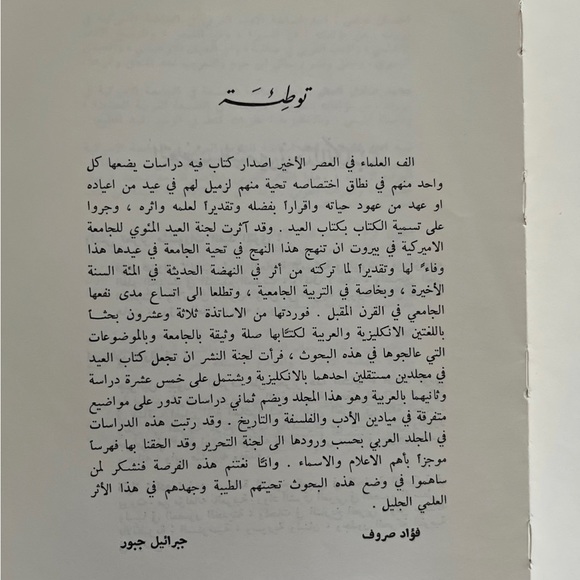 توطِئَة
الف العلماء في العصر الأخير اصدار كتاب فيه دراسات يضعها كل
واحد منهم في نطاق اختصاصه تحية منهم لزميل لهم في عيد من اعياده
او عهد من عهود حياته واقراراً بفضله وتقديراً لعلمه واثره ، وجروا
على تسمية الكتاب بكتاب العيد . وقد آثرت لجنة العيد المئوي للجامعة
الاميركية في بيروت ان تنهج هذا النهج في تحية الجامعة في عيدها هذا
وفاءً لها وتقديراً لما تركته من أثر في النهضة الحديثة في المئة السنة
الأخيرة ، وبخاصة في التربية الجامعية ، وتطلعا الى اتساع مدى نفعها
الجامعي في القرن المقبل . فوردتها من الاساتذة ثلاثة وعشرون بحثاً
باللغتين الانكليزية والعربية لكتّابها صلة وثيقة بالجامعة وبالموضوعات
التي عالجوها في هذه البحوث ، فرأت لجنة النشر ان تجعل كتاب العيد
في مجلدين مستقلين احدهما بالانكليزية ويشتمل على خمس عشرة دراسة
وثانيهما بالعربية وهو هذا المجلد ويضم ثماني دراسات تدور على مواضيع
متفرقة في ميادين الأدب والفلسفة والتاريخ . وقد رتبت هذه الدراسات
في المجلد العربي بحسب ورودها الى لجنة التحرير وقد الحقنا بها فهرساً
موجزاً بأهم الاعلام والاسماء . وانّا نغتنم هذه الفرصة فنشكر لمن
ساهموا في وضع هذه البحوث تحيتهم الطيبة وجهدهم في هذا الأثر
العلمي الجليل .
فؤاد صروف جبرائيل جبور